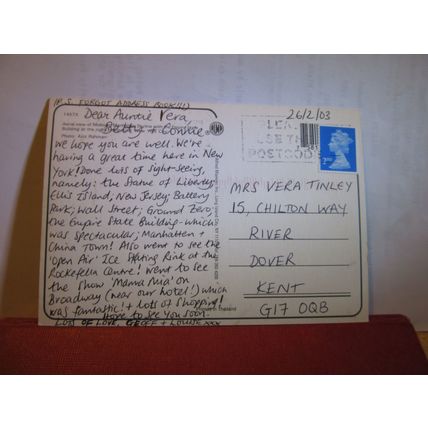 (P.S. FORGOT ADDRESS BOOK!!!)
Dear Auntie Vera,
Betty + Connie
We hope you are well. We're
having a great time here in New
York! Done lots of sight-seeing,
namely: the Statue of Liberty;
Ellis Island; New Jersey; Battery
Park; Wall Street; Ground Zero;
the Empire State Building - which
was spectacular; Manhatten +
China Town! Also went to see the
'Open Air' Ice Skating Rink at the
Rockefella Centre! Went to see
the show 'Mama Mia' on
Broadway (near our hotel!) which
was fantastic! + lots of shopping!
Hope to see you soon.
LOTS OF LOVE, GEOFF + Louise xxx
26/2/03
POSTCODE
2ND
MRS VERA TINLEY
15, CHILTON WAY
RIVER
DOVER
KENT
G17 0QB